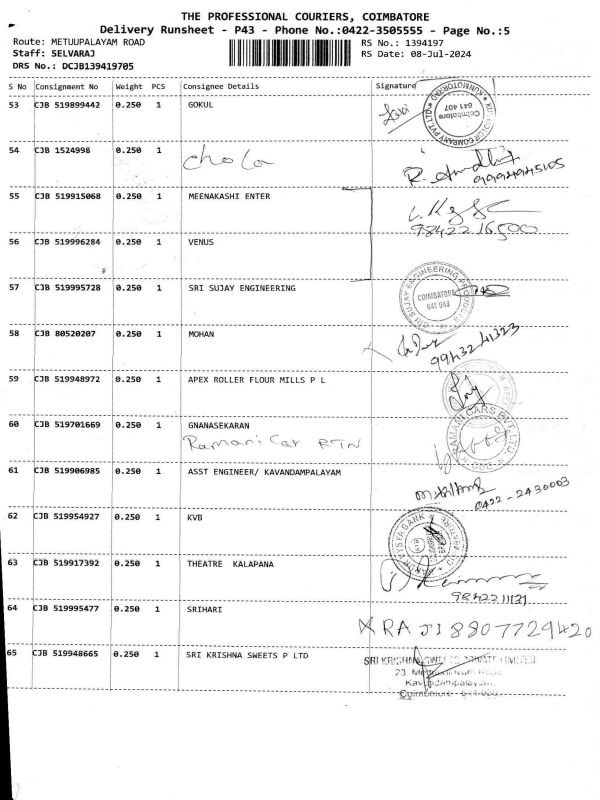 THE PROFESSIONAL COURIERS, COIMBATORE
Delivery Runsheet - P43 - Phone No.:0422-3505555 - Page No.:5
Route: METUUPALAYAM ROAD
RS No.: 1394197
Staff: SELVARAJ
RS Date: 08-Jul-2024
DRS No.: DCJB139419705
S No Consignment No Weight PCS Consignee Details Signature
53 CJB 519899442 0.250 1 GOKUL
641 407
Coimbatore
54 CJB 1524998 0.250 1 chola
9994945105
55 CJB 519915068 0.250 1 MEENAKASHI ENTER
98422 16500
56 CJB 519996284 0.250 1 VENUS
57 CJB 519995728 0.250 1 SRI SUJAY ENGINEERING
SRI SUJAY ENGINEERING PRODUCTS
COIMBATORE
641 043
58 CJB 80520207 0.250 1 MOHAN
99432 41323
59 CJB 519948972 0.250 1 APEX ROLLER FLOUR MILLS P L
60 CJB 519701669 0.250 1 GNANASEKARAN
Ramani Car RTN
RAMANI CARS PVT. LTD.
61 CJB 519906985 0.250 1 ASST ENGINEER/ KAVANDAMPALAYAM
0422 - 2430003
62 CJB 519954927 0.250 1 KVB
VYSYA BANK
63 CJB 519917392 0.250 1 THEATRE KALAPANA
9842211131
64 CJB 519995477 0.250 1 SRIHARI
RAJI 8807729420
65 CJB 519948665 0.250 1 SRI KRISHNA SWEETS P LTD
SRI KRISHNA SWEETS PRIVATE LIMITED
23 Mettupalayam Road
Kavundampalayam
Coimbatore